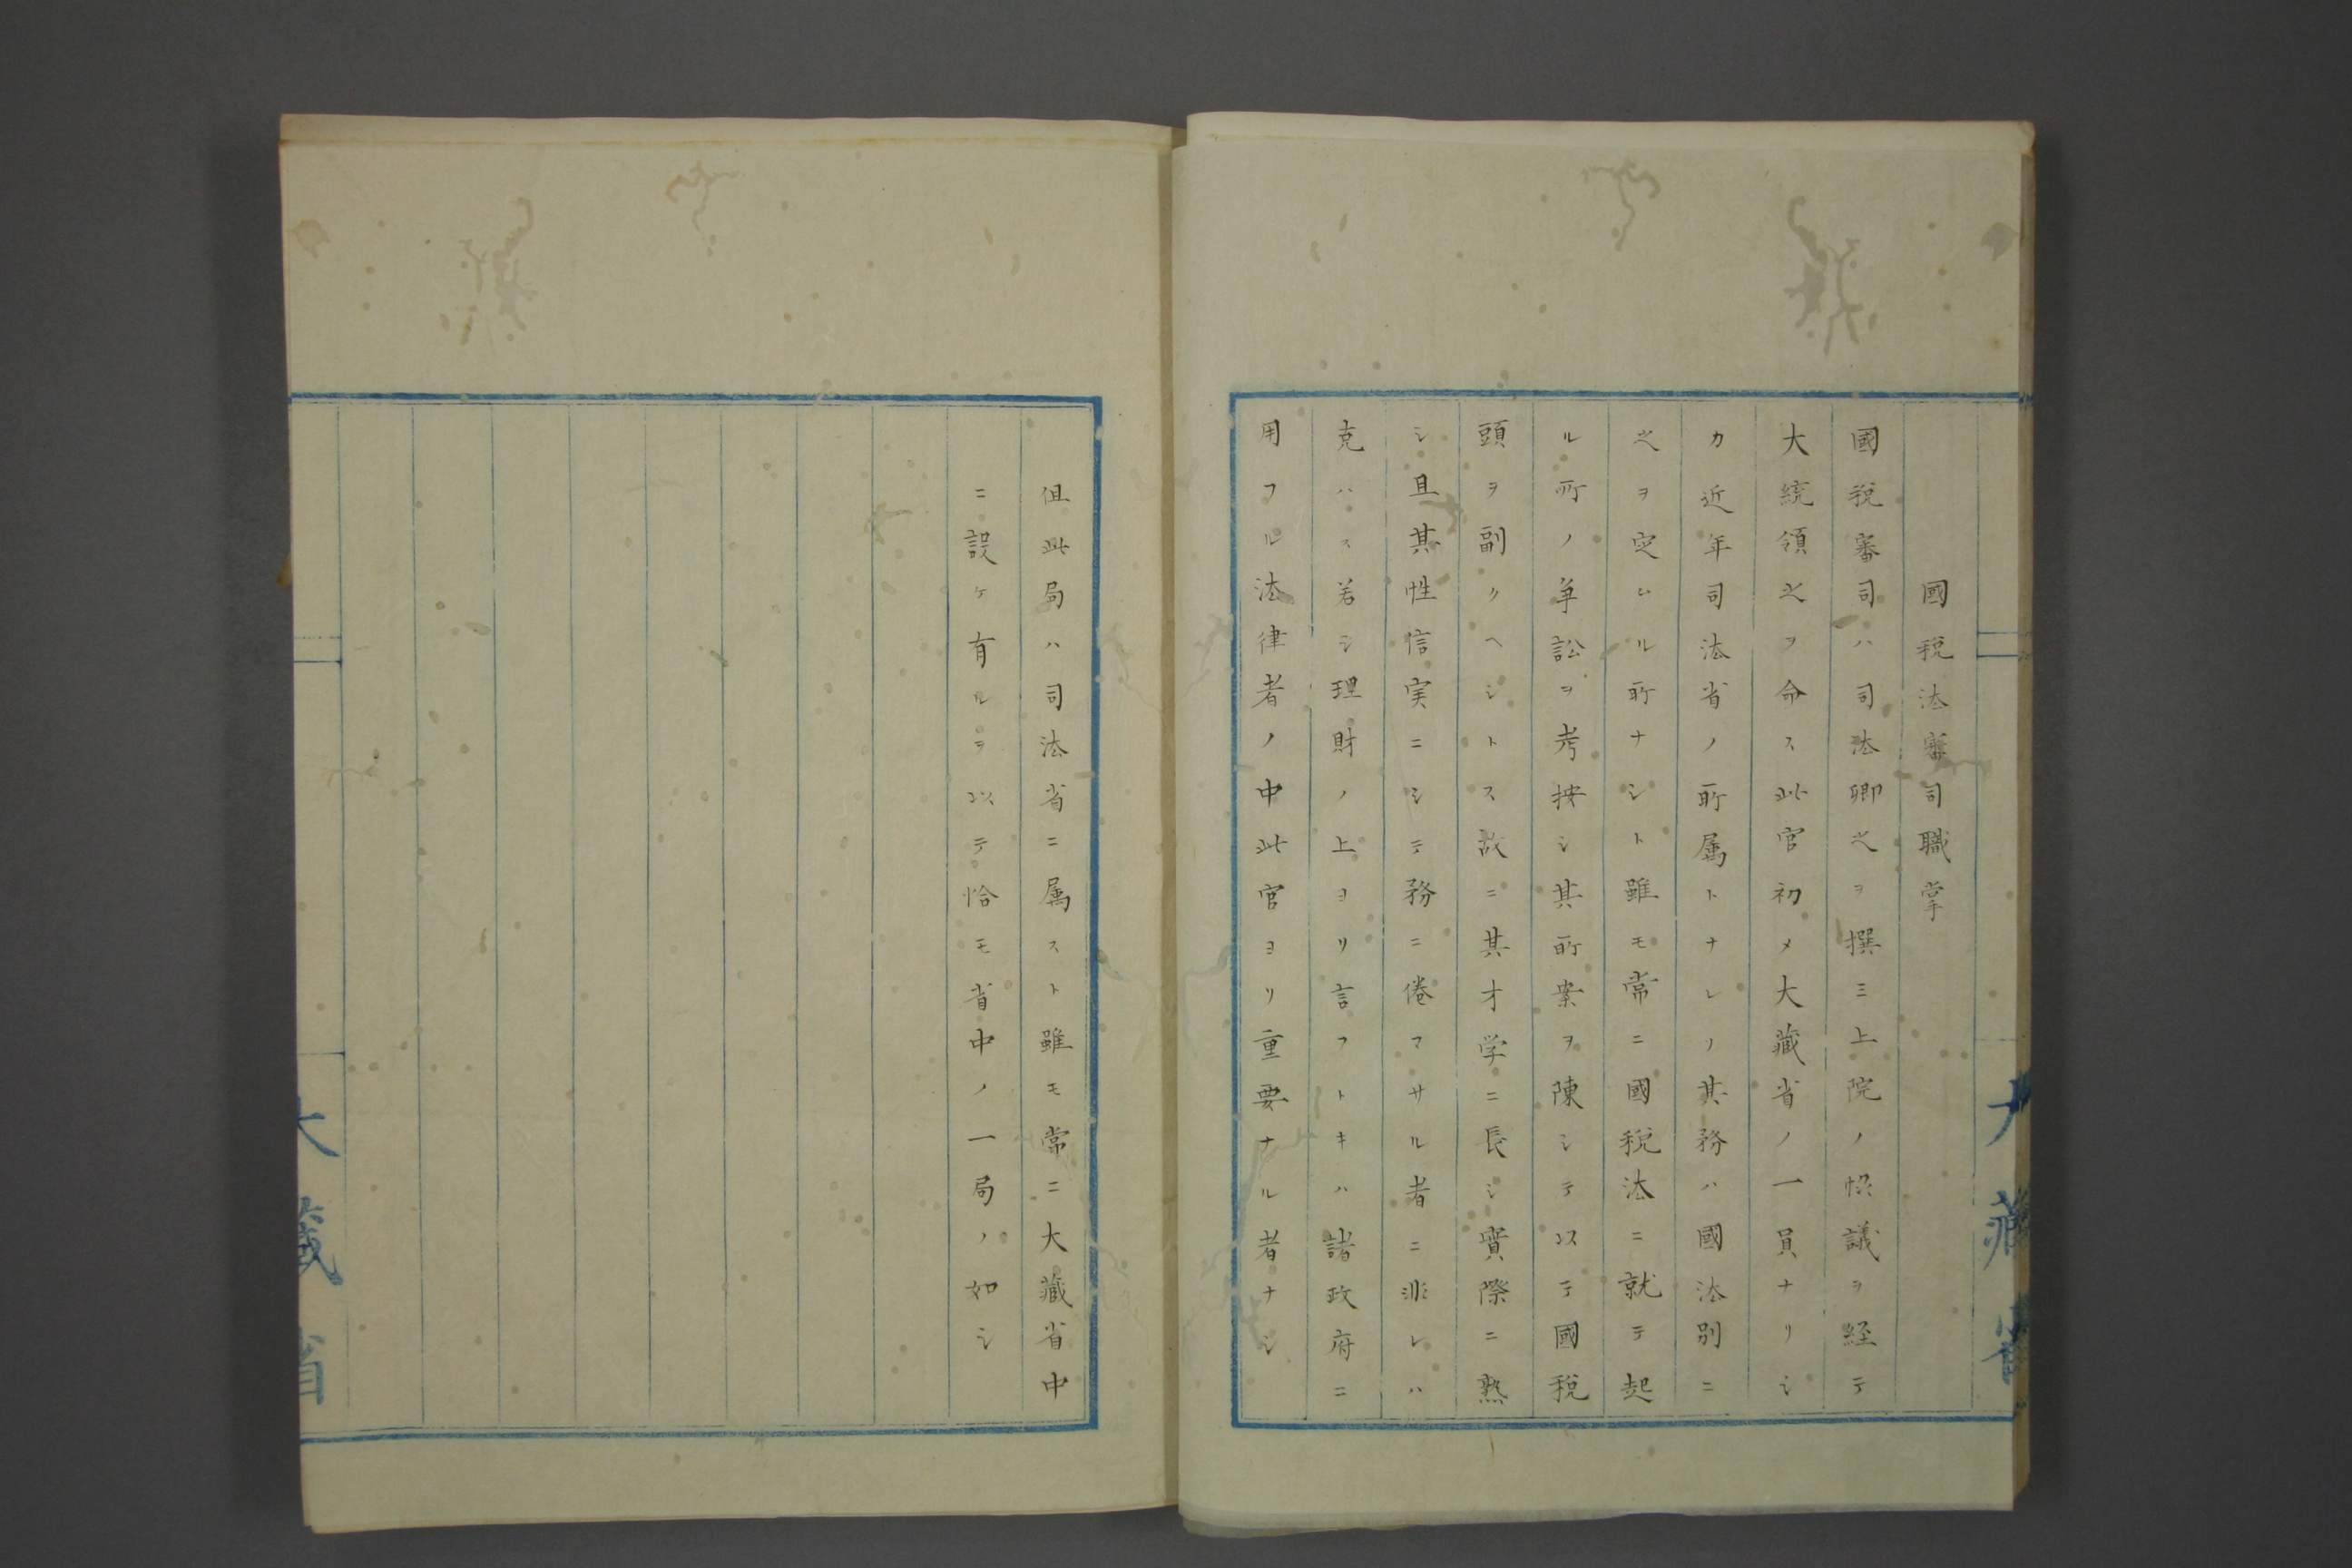 國税法審司職掌
國税審司ハ司法卿之ヲ撰ミ上院ノ恊議ヲ経テ
大統領之ヲ命ス此官初メ大藏省ノ一員ナリシ
カ近年司法省ノ所属トナレリ其務ハ國法別ニ
之ヲ定ムル所ナシト雖モ常ニ國税法ニ就テ起
ル所ノ争訟ヲ考按シ其所案ヲ陳シテ以テ國税
頭ヲ副クヘシトス故ニ其才学ニ長シ實際ニ熟
シ且其性信実ニシテ務ニ倦マサル者ニ非レハ
克ハス若シ理財ノ上ヨリ言フトキハ諸政府ニ
用フル法律者ノ中此官ヨリ重要ナル者ナシ
大藏省
但此局ハ司法省ニ属スト雖モ常ニ大藏省中
ニ設ケ有ルヲ以テ恰モ省中ノ一局ノ如シ
大藏省